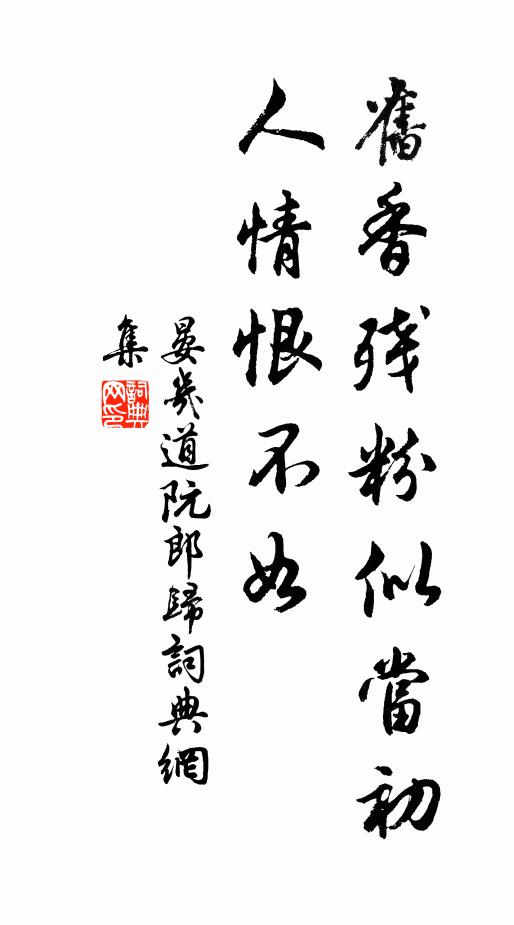 舊香殘粉似當初
人情恨不如
晏幾道阮郎歸詞典網
集
詞典網印